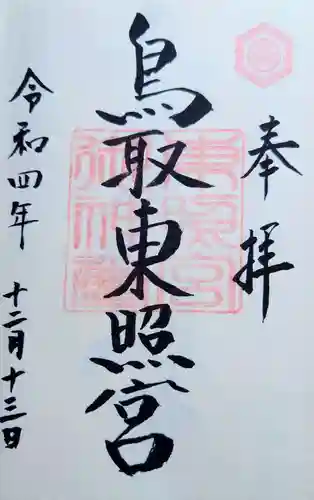 奉拝
鳥取東照宮
令和四年
十二月十三日